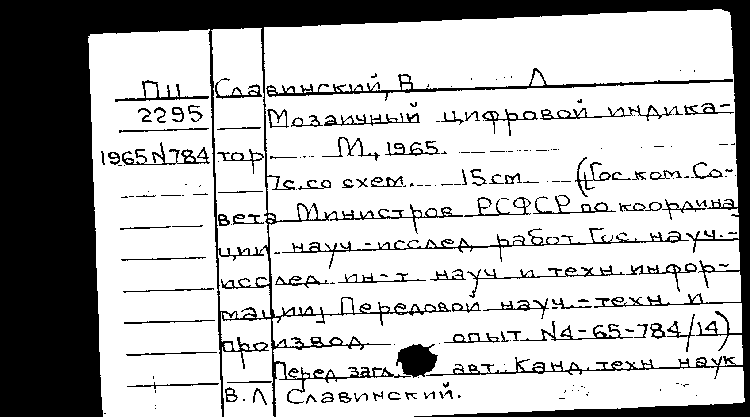 ПII Славинский, В. Л
2295 Мозаичный цифровой индика-
1965 N784 тор М., 1965.
7с. со схем. 15 см ([Гос. ком. Со-
вета Министров РСФСР по координа
ции науч-исслед. работ. Гос. науч.-
исслед. ин-т науч и техн. инфор-
мации] Передовой науч.-техн и
производ опыт. N4-65-784/14)
Перед загл. авт. Канд. техн наук
В. Л Славинский.